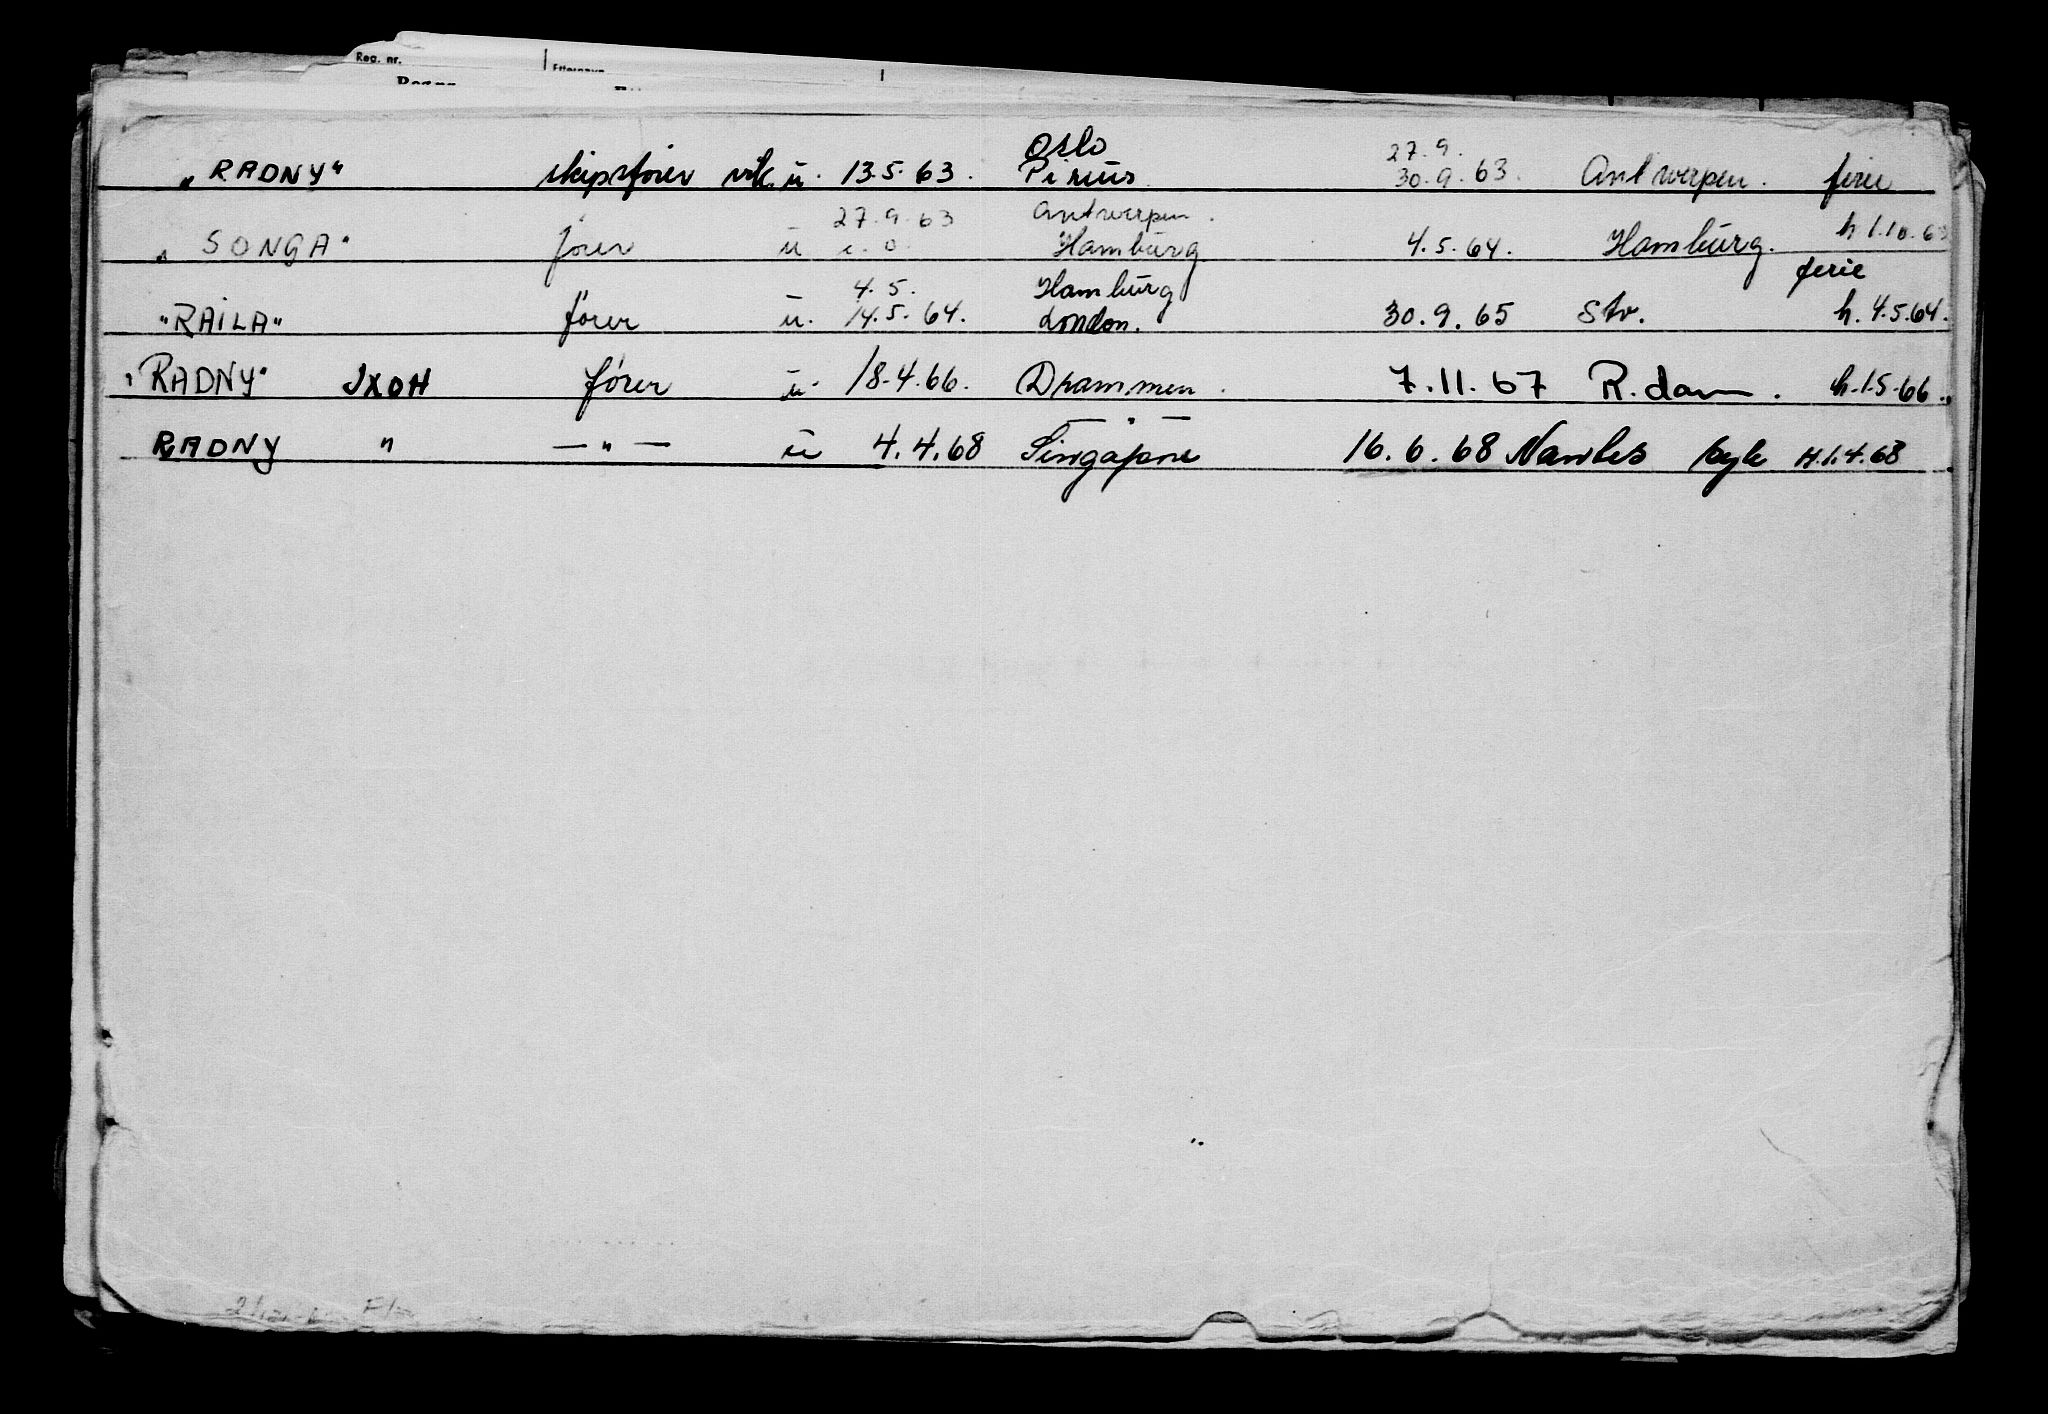 Reg. nr.
Oslo
27.9.
„RADNY" skipsfører vik. u. 13.5.63. Pireus 30.9.63. Antwerpen. ferie
27.9.63 Antwerpen.
„SONGA" fører u Hamburg 4.5.64. Hamburg. h 1.10.63
ferie
4.5. Hamburg
"RAILA" fører u. 14.5.64. London. 30.9.65 Stv. h. 4.5.64.
"RADNY" JXOH fører u. 18.4.66. Drammen. 7.11.67 R.dam. h.1.5.66.
RADNY " —"— u 4.4.68 Singapore 16.6.68 Nantes syk H.1.4.68